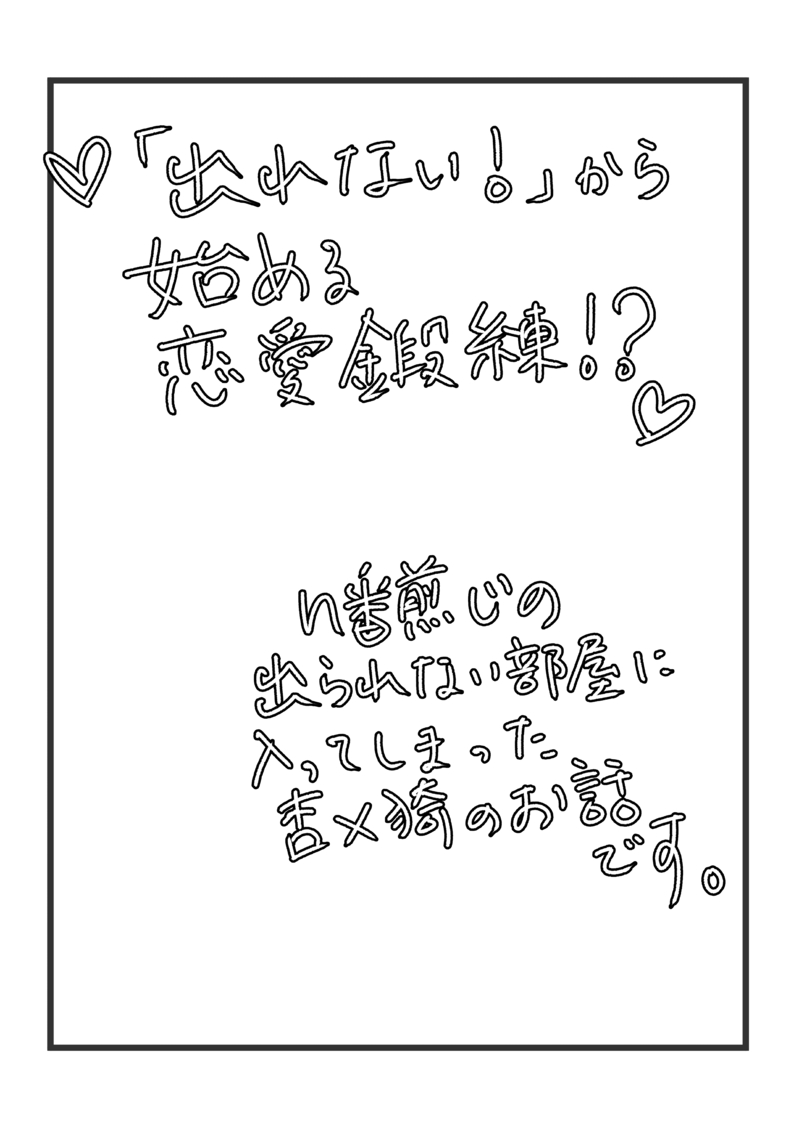 ♡「出れない!」から
始める
恋愛鍛練!?♡
n番煎じの
出られない部屋に
入ってしまった
吉×猗のお話
です。